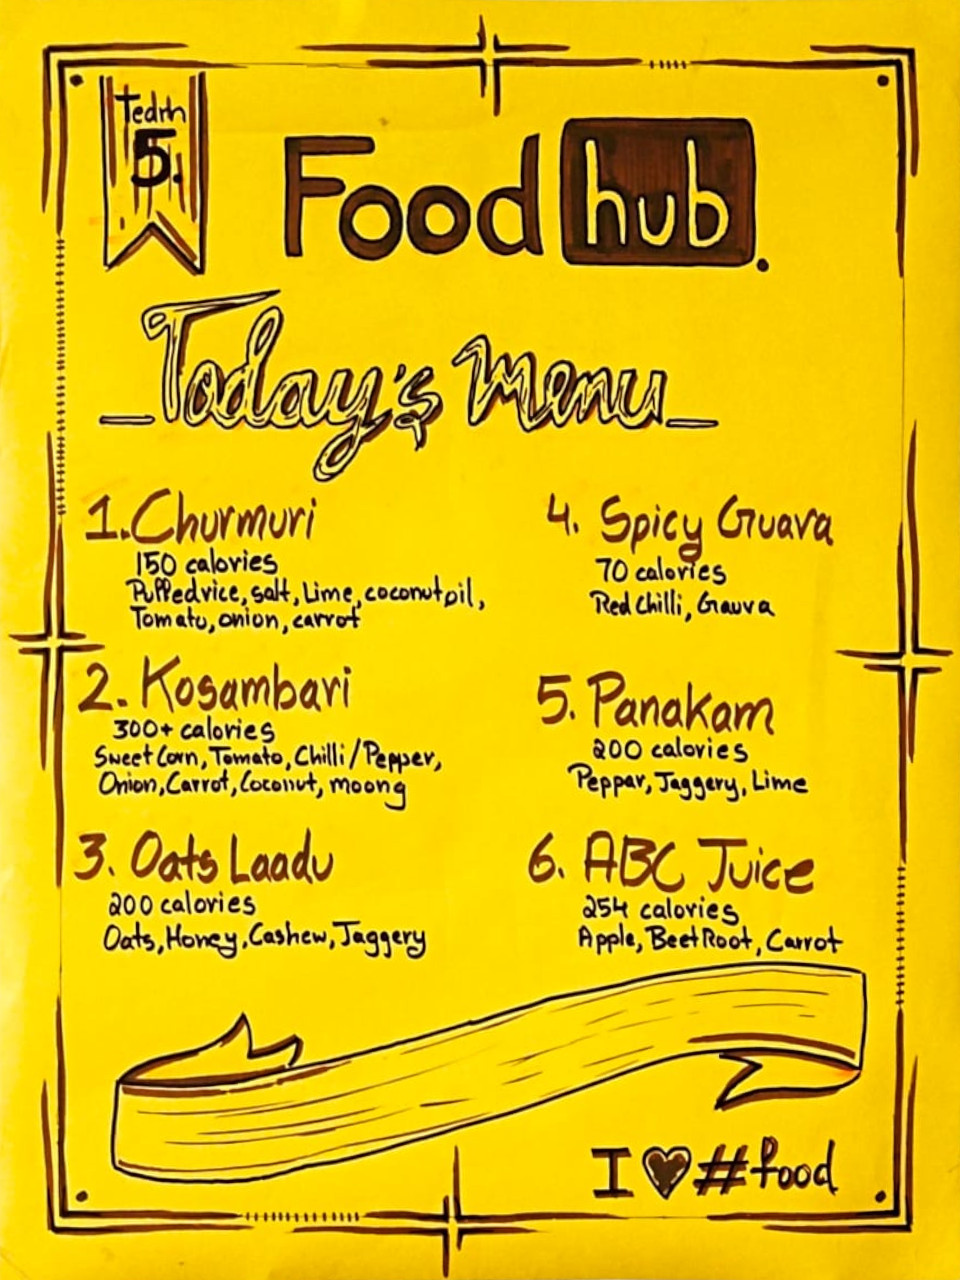 Team
5.
Food hub.
Today's Menu
1. Churmuri
150 calories
Puffed rice, salt, Lime, coconut oil,
Tomato, onion, carrot
2. Kosambari
300+ calories
Sweet Corn, Tomato, Chilli/Pepper,
Onion, Carrot, Coconut, moong
3. Oats Laadu
200 calories
Oats, Honey, Cashew, Jaggery
4. Spicy Guava
70 calories
Red Chilli, Gauva
5. Panakam
200 calories
Peppar, Jaggery, Lime
6. ABC Juice
254 calories
Apple, Beet Root, Carrot
I ♥ #food